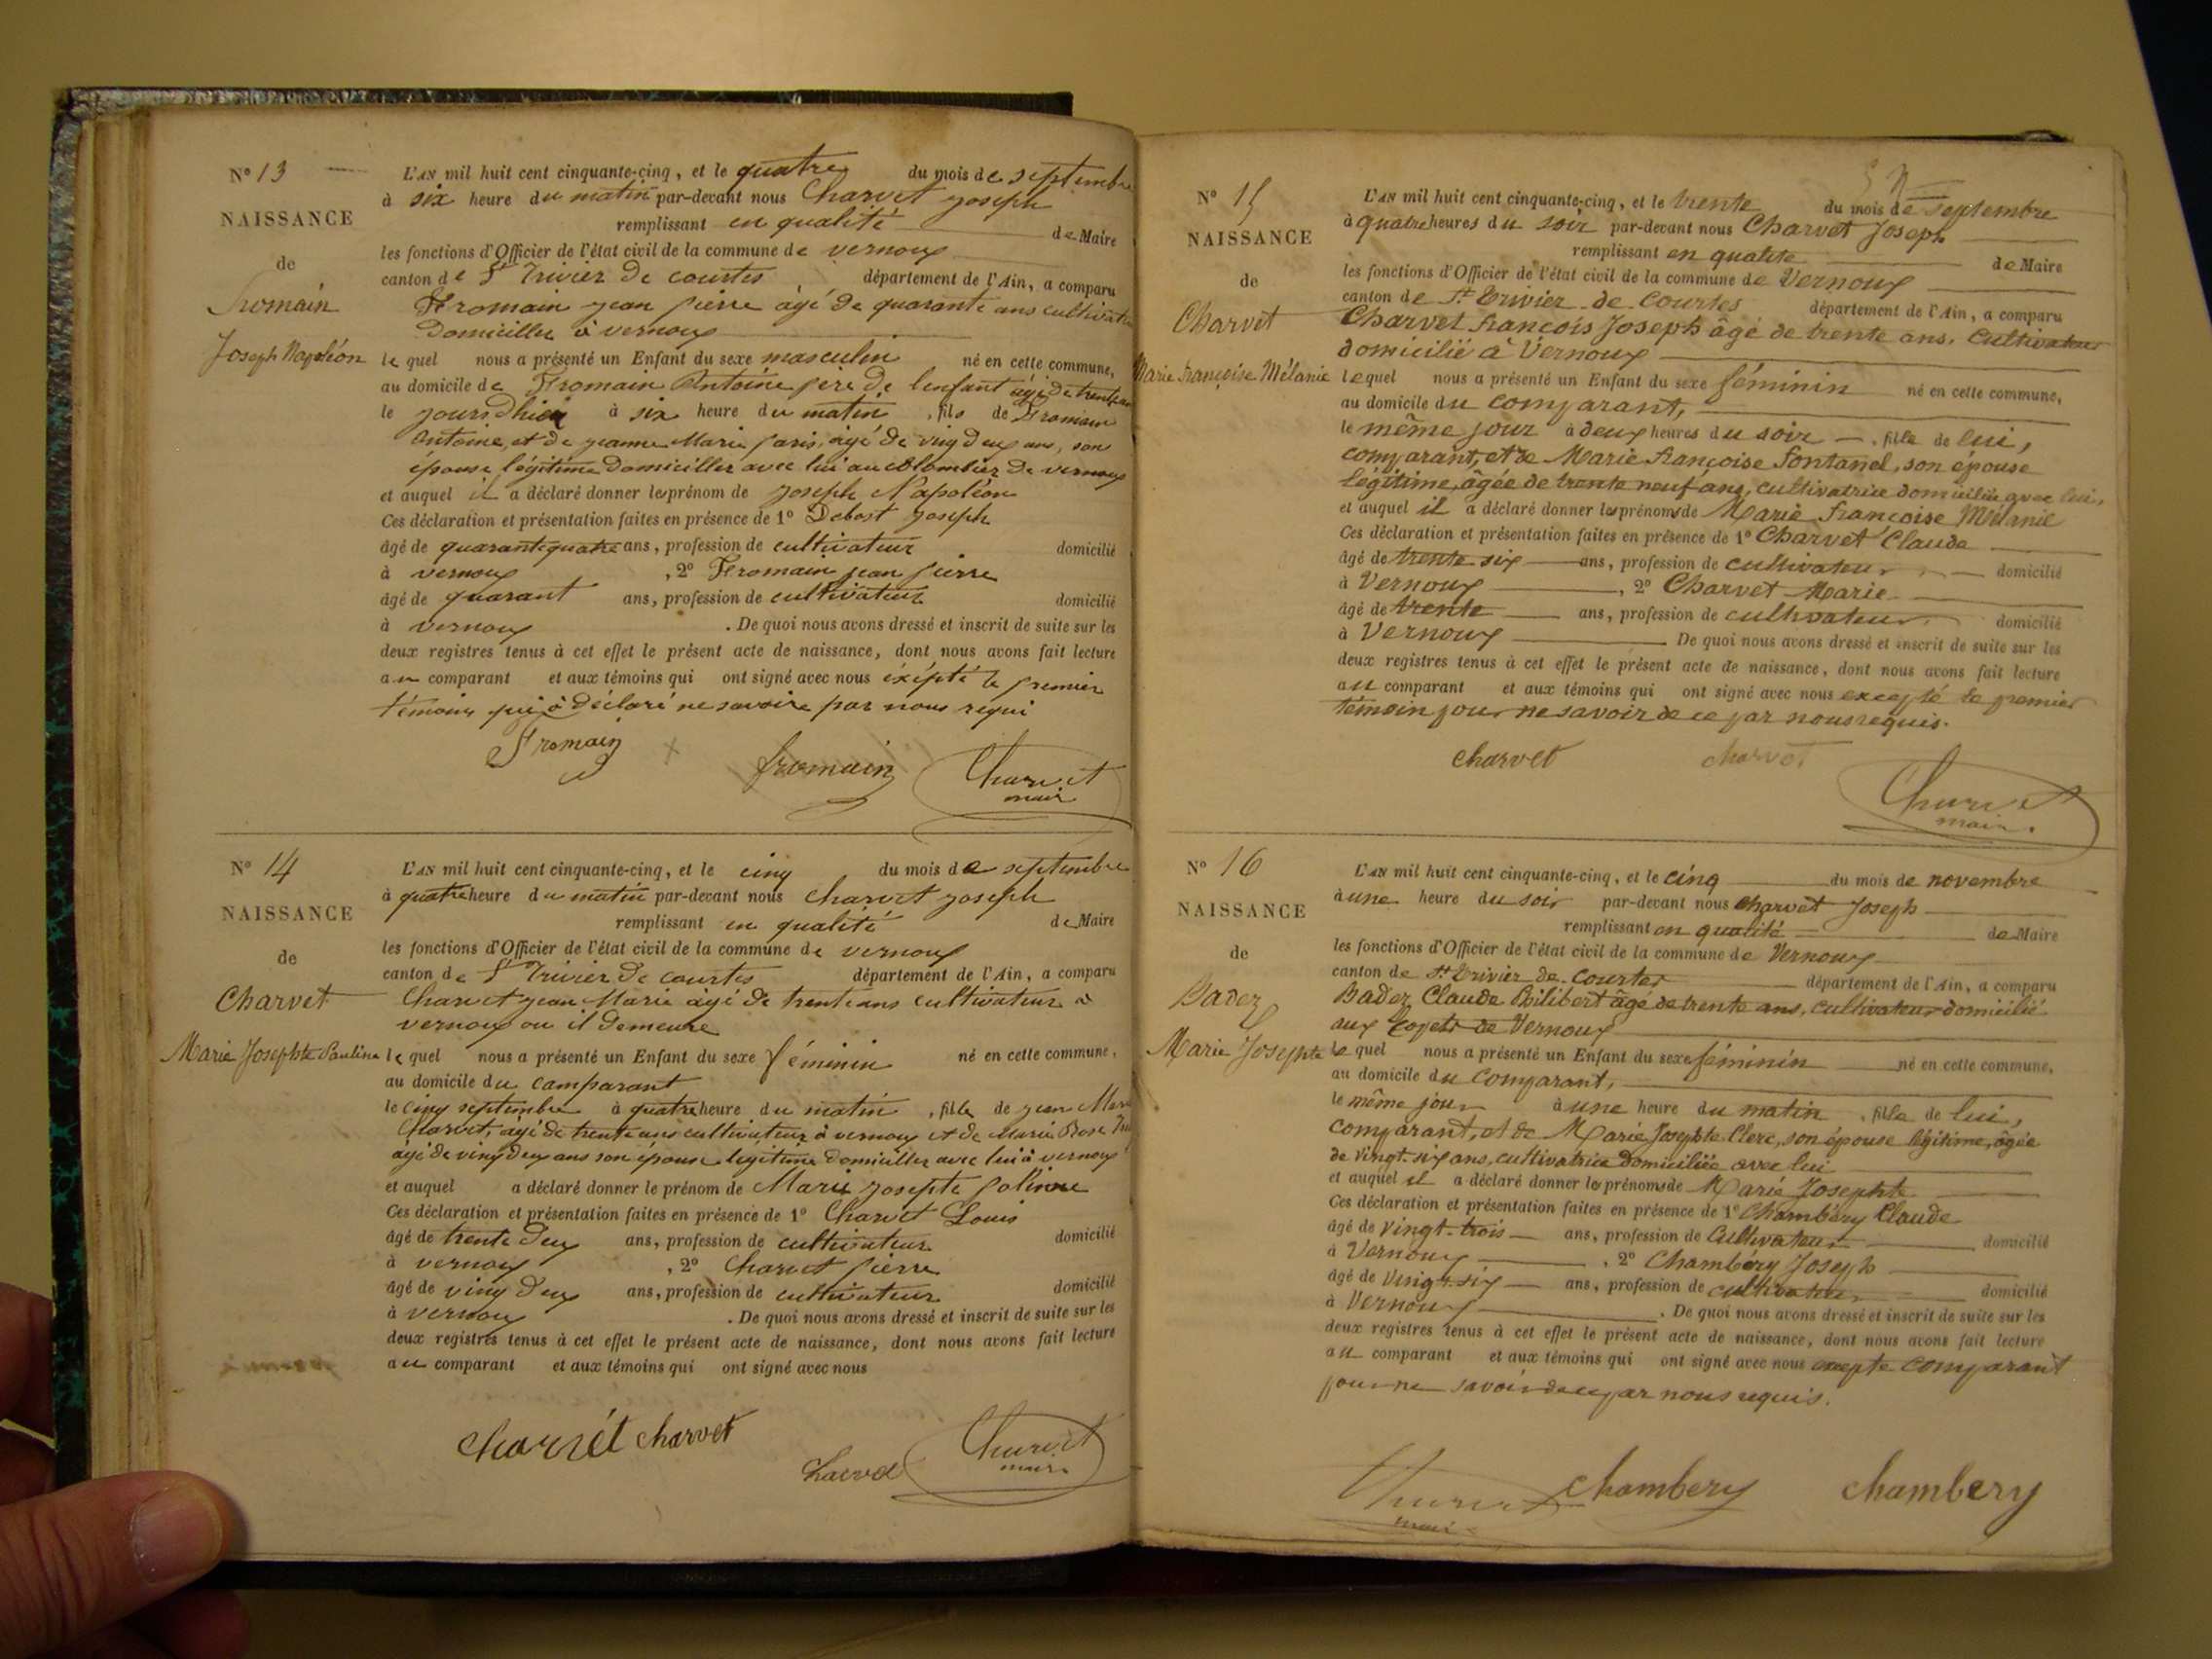 N° 13
NAISSANCE
de
Fromain
Joseph Napoléon
L'AN mil huit cent cinquante-cinq, et le quatre du mois de septembre
à six heure du matin par-devant nous Charvet joseph
remplissant en qualité de Maire
les fonctions d'Officier de l'état civil de la commune de vernoux
canton de St Trivier de courtes département de l'Ain, a comparu
Fromain jean pierre âgé de quarante ans cultivateur
domicillée à vernoux
le quel nous a présenté un Enfant du sexe masculin né en cette commune,
au domicile de Fromain Antoine père de lenfant âgé de trente
le jours dhier à six heure du matin , fils de Fromain
antoine, et de jeanne Marie paris, âgé de ving deux ans, son
épouse légitime domiciller avec lui au colombier de vernoux
et auquel il a déclaré donner les prénom de joseph Napoléon
Ces déclaration et présentation faites en présence de 1° Debost joseph
âgé de quarante quatre ans, profession de cultivateur domicilié
à vernoux , 2° Fromain jean pierre
âgé de quarant ans, profession de cultivateur domicilié
à vernoux . De quoi nous avons dressé et inscrit de suite sur les
deux registres tenus à cet effet le présent acte de naissance, dont nous avons fait lecture
au comparant et aux témoins qui ont signé avec nous éxépté le premier
témoins qui à déclaré ne savoire par nous réqui
Fromain fromain Charvet
mair
N° 14
NAISSANCE
de
Charvet
Marie Josephte Pauline
L'AN mil huit cent cinquante-cinq, et le cinq du mois de septembre
à quatre heure du matin par-devant nous charvet joseph
remplissant en qualité de Maire
les fonctions d'Officier de l'état civil de la commune de vernoux
canton de St Trivier de courtes département de l'Ain, a comparu
Charvet jean Marie âgé de trente ans cultivateur à
vernoux ou il demeure
le quel nous a présenté un Enfant du sexe féminin né en cette commune,
au domicile du comparant
le cinq septembre à quatre heure du matin , fille de jean Marie
Charvet, âgé de trente ans cultivateur à vernoux et de Marie Rose
âgé de ving deux ans son épouse légitime domiciller avec lui à vernoux
et auquel a déclaré donner le prénom de Marie josephte poline
Ces déclaration et présentation faites en présence de 1° Charvet Louis
âgé de trente deux ans, profession de cultivateur domicilié
à vernoux , 2° Charvet pierre
âgé de ving deux ans, profession de cultivateur domicilié
à vernoux . De quoi nous avons dressé et inscrit de suite sur les
deux registres tenus à cet effet le présent acte de naissance, dont nous avons fait lecture
au comparant et aux témoins qui ont signé avec nous
charvét charvet
Charvet
mair
N° 15
NAISSANCE
de
Charvet
Marie Françoise Mélanie
L'AN mil huit cent cinquante-cinq, et le trente du mois de septembre
à quatre heures du soir par-devant nous Charvet Joseph
remplissant en qualité de Maire
les fonctions d'Officier de l'état civil de la commune de Vernoux
canton de St. Trivier de Courtes département de l'Ain, a comparu
Charvet françois Joseph âgé de trente ans, cultivateur
domicilié à Vernoux
le quel nous a présenté un Enfant du sexe féminin né en cette commune,
au domicile du comparant,
le même jour à deux heures du soir , fille de lui,
comparant, et de Marie françoise Fontanel, son épouse
légitime, âgée de trente neuf ans, cultivatrice domiciliée avec lui,
et auquel il a déclaré donner les prénoms de Marie françoise Mélanie
Ces déclaration et présentation faites en présence de 1° Charvet Claude
âgé de trente six ans, profession de cultivateur domicilié
à Vernoux , 2° Charvet Marie
âgé de trente ans, profession de cultivateur domicilié
à Vernoux De quoi nous avons dressé et inscrit de suite sur les
deux registres tenus à cet effet le présent acte de naissance, dont nous avons fait lecture
au comparant et aux témoins qui ont signé avec nous excepté le premier
témoin pour ne savoir de ce par nous requis.
charvet charvet
Charvet
mair
N° 16
NAISSANCE
de
Bader
Marie Josephte
L'AN mil huit cent cinquante-cinq, et le cinq du mois de novembre
à une heure du soir par-devant nous charvet Joseph
remplissant en qualité de Maire
les fonctions d'Officier de l'état civil de la commune de Vernoux
canton de St Trivier de Courtes département de l'Ain, a comparu
Bader Claude Philibert âgé de trente ans, cultivateur domicilié
aux de Vernoux
le quel nous a présenté un Enfant du sexe féminin né en cette commune,
au domicile du comparant,
le même jour à une heure du matin , fille de lui,
comparant, et de Marie Josephte Clerc, son épouse légitime, âgée
de vingt-six ans, cultivatrice domiciliée avec lui
et auquel il a déclaré donner les prénoms de Marie Josephte
Ces déclaration et présentation faites en présence de 1° Chambéry Claude
âgé de vingt-trois ans, profession de Cultivateur domicilié
à Vernoux , 2° Chambéry Joseph
âgé de vingt-six ans, profession de cultivateur domicilié
à Vernoux . De quoi nous avons dressé et inscrit de suite sur les
deux registres tenus à cet effet le présent acte de naissance, dont nous avons fait lecture
au comparant et aux témoins qui ont signé avec nous excepté comparant
pour ne savoir de ce par nous requis.
Charvet chambery chambery
mair